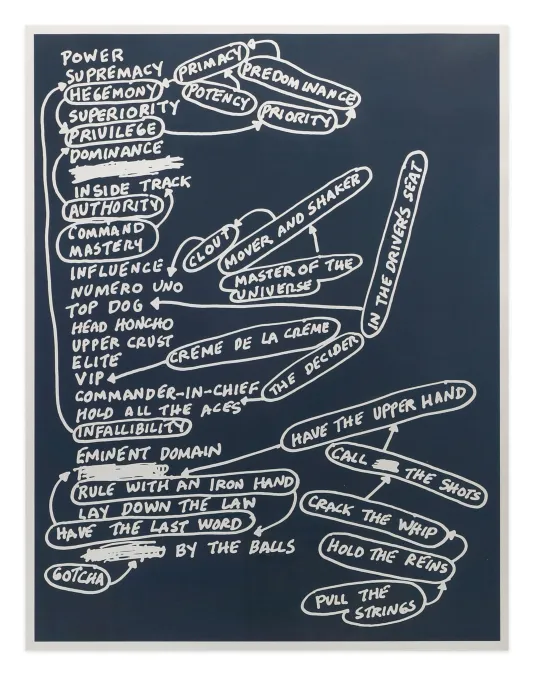 POWER
SUPREMACY
PRIMACY
PREDOMINANCE
HEGEMONY
POTENCY
SUPERIORITY
PRIORITY
PRIVILEGE
DOMINANCE
INSIDE TRACK
AUTHORITY
COMMAND
MASTERY
CLOUT
MOVER AND SHAKER
INFLUENCE
MASTER OF THE
UNIVERSE
NUMERO UNO
IN THE DRIVER'S SEAT
TOP DOG
HEAD HONCHO
UPPER CRUST
CRÈME DE LA CRÈME
ELITE
VIP
THE DECIDER
COMMANDER-IN-CHIEF
HOLD ALL THE ACES
INFALLIBILITY
HAVE THE UPPER HAND
EMINENT DOMAIN
CALL THE SHOTS
RULE WITH AN IRON HAND
LAY DOWN THE LAW
CRACK THE WHIP
HAVE THE LAST WORD
BY THE BALLS
HOLD THE REINS
GOTCHA
PULL THE
STRINGS